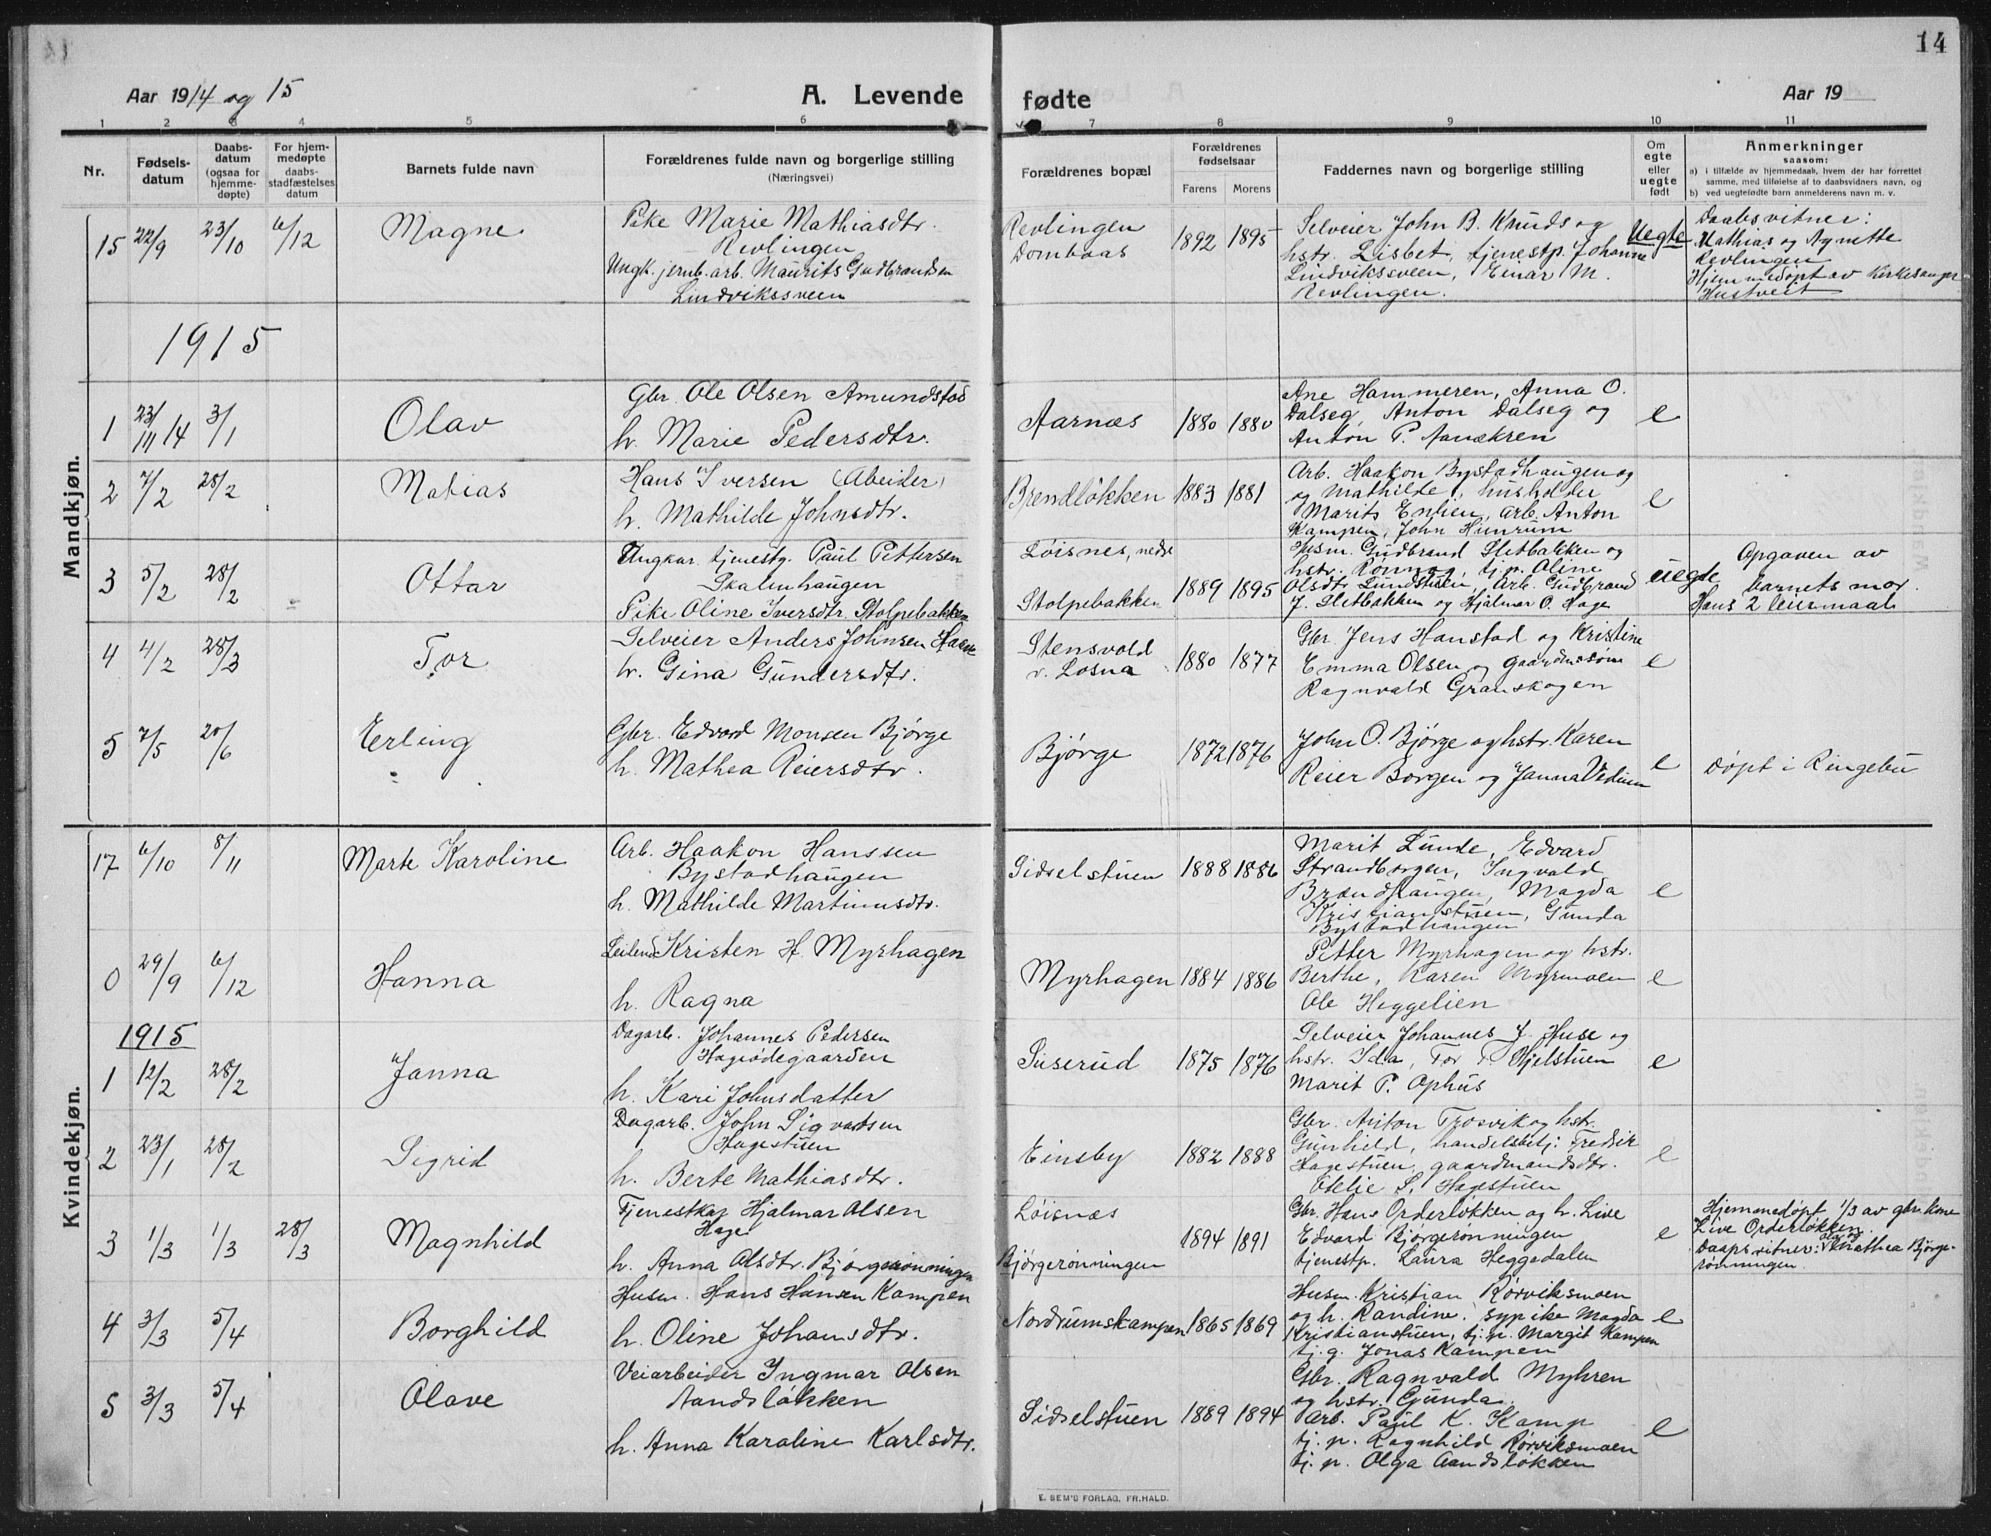 14
Aar 1914 og 15
A. Levende
fødte
Aar 19
1 2 3 4 5 6 7 8 9 10 11
Nr.
Fødsels-
datum
Daabs-
datum
(ogsaa for
hjemme-
døpte)
For hjem-
medøpte
daabs-
stadfæstelses
datum
Barnets fulde navn
Forældrenes fulde navn og borgerlige stilling
(Næringsvei)
Forældrenes bopæl
Forældrenes
fødselsaar
Farens Morens
Faddernes navn og borgerlige stilling
Om
egte
eller
uegte
født
Anmerkninger
saasom:
a) i tilfælde av hjemmedaab, hvem der har forrettet
samme, med tilføielse af to daabsvidners navn, og
b) ved uegtefødte barn anmelderens navn m. v.
Mandkjøn.
15 22/9 23/10 6/12 Magne
Pike Marie Mathiasdtr.
Revlingen
Ungk. jernb. arb. Maurits Gudbrandsen
Lindvikssveen
Revlingen
Dombaas
1892 1895
Selveier John B. Knuds og
hstr. Lisbet, tjenestp. Johanne
Lindvikssveen, Einar M.
Revlingen.
Uegte
Daabsvitner:
Mathias og Agnette
Revlingen
Hjemmedøpt av Kirkesanger
Hustveit
1915
1 23/11 14 3/1 Olav
Gbr. Ole Olsen Amundstad
h. Marie Pedersdtr.
Aarnæs 1880 1880
Ane Hammeren, Anna O.
Dalseg, Anton Dalseg og
Anton P.
e
2 7/2 28/2 Matias
Hans Iversen (Abeider)
h. Mathilde Johnsdtr.
Brendløkken 1883 1881
Arb. Haakon Bystadhaugen og
og Mathilde, husholder
Marits Enlien, arb. Anton
Kampen, John Hunrum
e
3 5/2 28/2 Ottar
Ungkar tjenestg. Paul Pettersen
Skalmhaugen
Pike Oline Iversdtr. Stolpebakken
Løisnes, nedre
Stolpebakken
1889 1895
Husm. Gudbrand Sletbakken og
hstr. Rønnog, tj.p. Oline
Olsdtr Lundstuen, Arb. Gudbrand
J. Sletbakken og Hjalmar O. Hage
uegte
Opgaven av
barnets mor
Hans 2 leiermaal
4 4/2 28/3 Tor
Selveier Anders Johnsen
h. Gina Gundersdtr.
Stensvold
v. Losna
1880 1877
Gbr. Jens Hanstad og Kristine
Emma Olsen og gaardmssøn
Ragnvald Granskogen
e
5 7/5 20/6 Erling
Gbr. Edvard Monsen Bjørge
h. Mathea Reiersdtr.
Bjørge 1872 1876
John O. Bjørge og hstr. Karen
Reier Borgen og Janna Vedum
e
Døpt i Ringebu
Kvindekjøn.
17 6/10 8/11 Marte Karoline
Arb. Haakon Hanssen
Bystadhaugen
h. Mathilde Martinusdtr.
Sidselstuen 1888 1886
Marit Lunde, Edvard
Strandborgen, Ingvald
Brændhaugen, Magda
Kristianstuen, Gunda
Bystadhaugen
e
0 29/9 6/12 Hanna
Leilend. Kristen H. Myrhagen
h. Ragna
Myrhagen 1884 1886
Petter Myrhagen og hstr.
Berthe, Karen Myrmoen
Ole Heggelien
e
1915
1 12/2 28/2 Janna
Dagarb. Johannes Pedersen
Hageødegaarden
h. Kari Johnsdatter
Suserud 1875 1876
Selveier Johannes J. Huse og
hstr. Ida, Tor T. Kjelstuen
Marit P. Ophus
e
2 23/1 28/2 Sigrid
Dagarb. John Sigvartsen
Hagestuen
h. Berte Mathiasdtr.
Einsby 1882 1888
Gbr. Anton Trosvik og hstr.
Gunhild, handelsbetj. Fredrik
Hagestuen, gaardmandsdtr.
Otelie S. Hagestuen
e
3 1/3 1/3 28/3 Magnhild
Tjenestkar Hjalmar Olsen
Hage
h. Anna Olsdtr. Bjørgerønningen
Løisnæs
Bjørgerønningen
1894 1891
Gbr. Hans Orderløkken og h. Live
Edvard Bjørgerønningen
tjenestp. Laura Heggedalen
e
Hjemmedøpt 1/3 av gbr. kone
Live Orderløkken.
Daapsvitner: Ola og Mathea Bjørge-
rønningen.
4 3/3 5/4 Borghild
Husm. Hans Hansen Kampen
h. Oline Johansdtr.
Nordrumskampen 1865 1869
Husm. Kristian Rørviksmoen
og h. Randine. sypike Magda
Kristianstuen, tj. p. Margit Kampen
tj. g. Jonas Kampen
e
5 3/3 5/4 Olave
Veiarbeider Ingmar Olsen
Aandsløkken
h. Anna Karoline Karlsdtr.
Sidselstuen 1889 1894
Gbr. Ragnvald Myhren
og hstr. Gunda.
Arb. Paul K. Kamp
tj. p. Ragnhild Rørviksmoen
tj. p. Olga Aandsløkken
e
E. SEM'S FORLAG, FR.HALD.